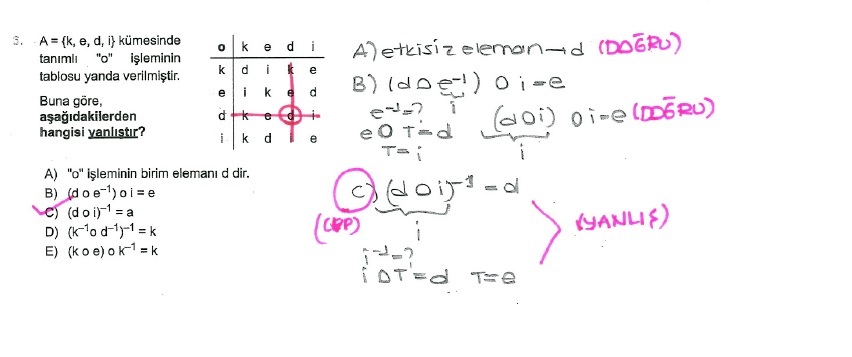 3. A = {k, e, d, i} kümesinde
tanımlı "o" işleminin
tablosu yanda verilmiştir.
Buna göre,
aşağıdakilerden
hangisi yanlıştır?
o k e d i
k d i k e
e i k e d
d k e d i
i k d i e
A) "o" işleminin birim elemanı d dir.
B) (d o e⁻¹) o i = e
C) (d o i)⁻¹ = a
D) (k⁻¹o d⁻¹)⁻¹ = k
E) (k o e) o k⁻¹ = k
A) etkisiz eleman → d (DOĞRU)
B) (d O e⁻¹) O i = e
i
e⁻¹=?
e O T = d
T = i
(d O i) O i = e (DOĞRU)
i
C) (d O i)⁻¹ = d
i
i⁻¹=?
i O T = d T = e
(YANLIŞ)